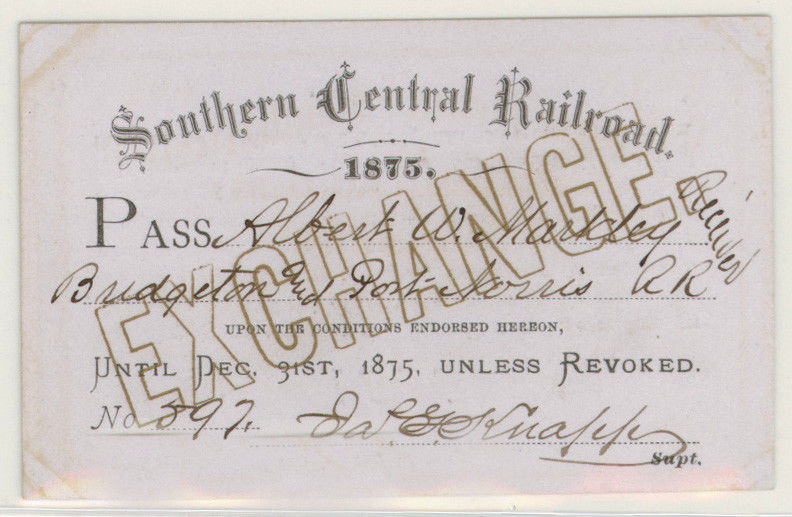 Southern Central Railroad.
1875.
EXCHANGE
PASS Albert W. Markley Receiver
Bridgeton and Port Norris RR
UPON THE CONDITIONS ENDORSED HEREON,
UNTIL DEC. 31ST, 1875, UNLESS REVOKED.
No 597. Jas G Knapp
Supt.